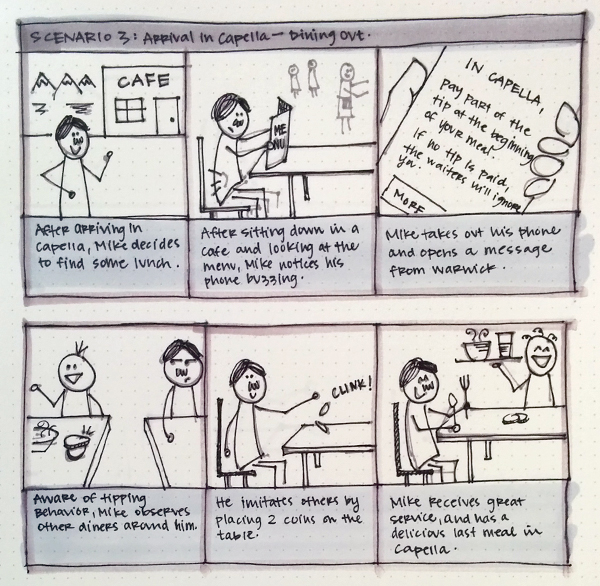 SCENARIO 3: Arrival in Capella — Dining Out.
CAFE
MENU
IN CAPELLA,
pay part of the
tip at the beginning
of your meal.
If no tip is paid,
the waiters will ignore
you.
MORE
After arriving in
Capella, Mike decides
to find some lunch.
After sitting down in a
cafe and looking at the
menu, Mike notices his
phone buzzing.
Mike takes out his phone
and opens a message
from Warwick.
CLINK!
Aware of tipping
behavior, Mike observes
other diners around him.
He imitates others by
placing 2 coins on the
table.
Mike receives great
service, and has a
delicious last meal in
Capella.